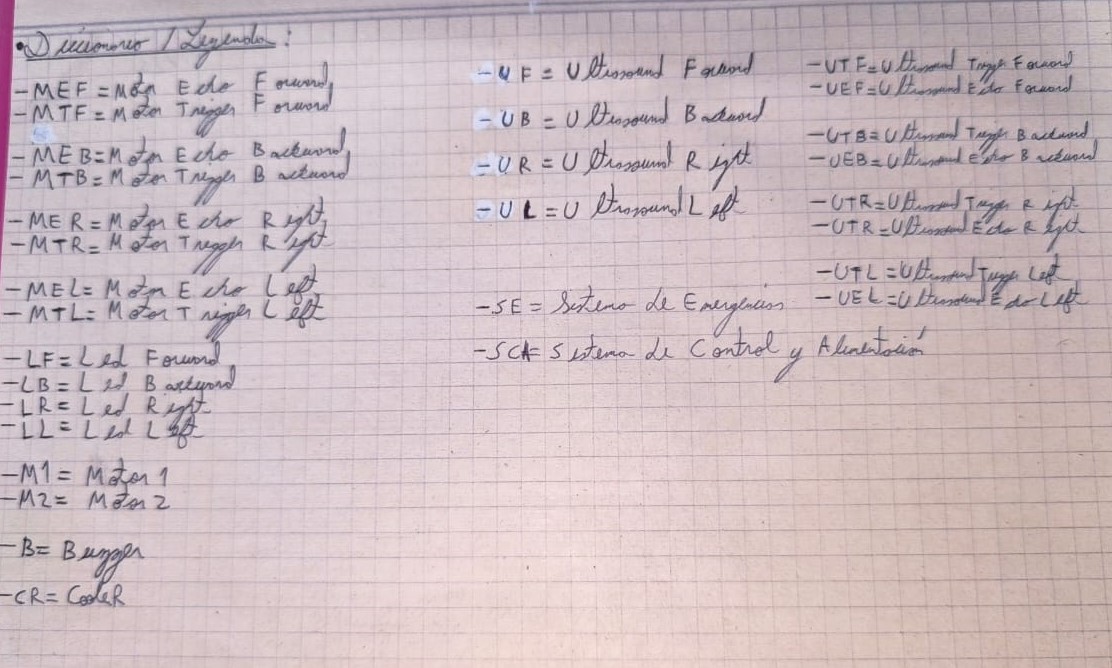 •Diccionario / Leyenda:
-MEF = Motor Echo Forward
-MTF = Motor Trigger Forward
-MEB = Motor Echo Backward
-MTB = Motor Trigger Backward
-MER = Motor Echo Right
-MTR = Motor Trigger Right
-MEL = Motor Echo Left
-MTL = Motor Trigger Left
-LF = Led Forward
-LB = Led Backward
-LR = Led Right
-LL = Led Left
-M1 = Motor 1
-M2 = Motor 2
-B = Buzzer
-CR = CooleR
-UF = Ultrasound Forward
-UB = Ultrasound Backward
-UR = Ultrasound Right
-UL = Ultrasound Left
-SE = Sistema de Emergencias
-SCA = Sistema de Control y Alimentación
-UTF = Ultrasound Trigger Forward
-UEF = Ultrasound Echo Forward
-UTB = Ultrasound Trigger Backward
-UEB = Ultrasound Echo Backward
-UTR = Ultrasound Trigger Right
-UTR = Ultrasound Echo Right
-UTL = Ultrasound Trigger Left
-UEL = Ultrasound Echo Left